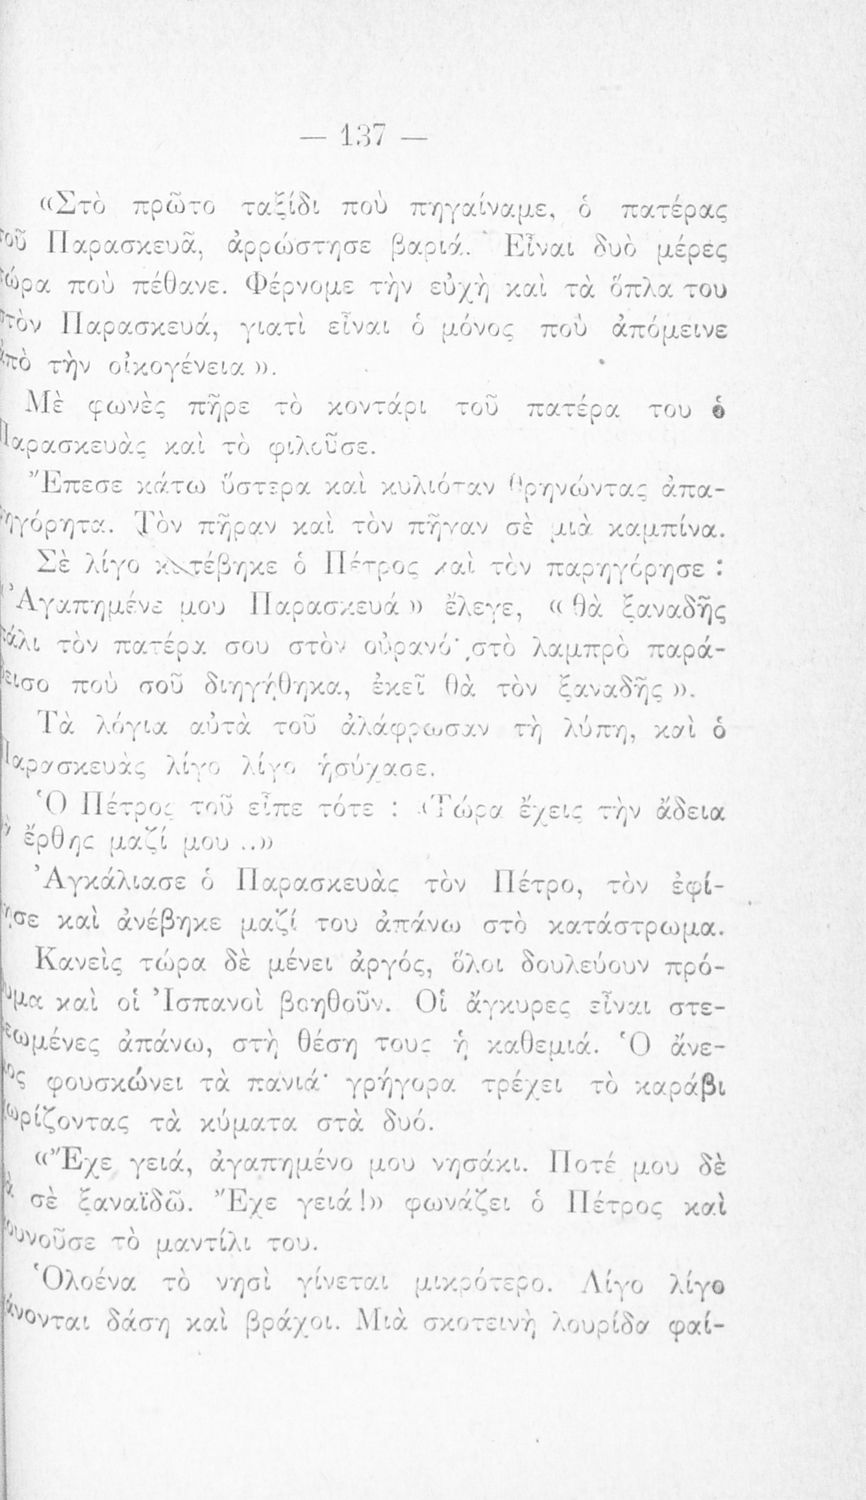 — 137 —
«Στὸ πρῶτο ταξίδι ποὺ πηγαίναμε, ὁ πατέρας
τοῦ Παρασκευᾶ, ἀρρώστησε βαριά. Εἶναι δυὸ μέρες
τώρα ποὺ πέθανε. Φέρνομε τὴν εὐχὴ καὶ τὰ ὅπλα του
στὸν Παρασκευά, γιατὶ εἶναι ὁ μόνος ποὺ ἀπόμεινε
ἀπὸ τὴν οἰκογένεια».
Μὲ φωνὲς πῆρε τὸ κοντάρι τοῦ πατέρα του ὁ
Παρασκευὰς καὶ τὸ φιλοῦσε.
Ἔπεσε κάτω ὕστερα καὶ κυλιόταν θρηνώντας ἀπα-
ηγόρητα. Τὸν πῆραν καὶ τὸν πῆγαν σὲ μιὰ καμπίνα.
Σὲ λίγο κατέβηκε ὁ Πέτρος καὶ τὸν παρηγόρησε :
Ἀγαπημένε μου Παρασκευά» ἔλεγε, «θὰ ξαναδῆς
πάλι τὸν πατέρα σου στὸν οὐρανό· στὸ λαμπρὸ παρά-
εισο ποὺ σοῦ διηγήθηκα, ἐκεῖ θὰ τὸν ξαναδῆς».
Τὰ λόγια αὐτὰ τοῦ ἀλάφρωσαν τὴ λύπη, καὶ ὁ
Παρασκευὰς λίγο λίγο ἡσύχασε.
Ὁ Πέτρος τοῦ εἶπε τότε : «Τώρα ἔχεις τὴν ἄδεια
ἔρθης μαζί μου ...»
Ἀγκάλιασε ὁ Παρασκευὰς τὸν Πέτρο, τὸν ἐφί-
ησε καὶ ἀνέβηκε μαζί του ἀπάνω στὸ κατάστρωμα.
Κανεὶς τώρα δὲ μένει ἀργός, ὅλοι δουλεύουν πρό-
υμα καὶ οἱ Ἰσπανοὶ βοηθοῦν. Οἱ ἄγκυρες εἶναι στε-
εωμένες ἀπάνω, στὴ θέση τους ἡ καθεμιά. Ὁ ἄνε-
ος φουσκώνει τὰ πανιά· γρήγορα τρέχει τὸ καράβι
ωρίζοντας τὰ κύματα στὰ δυό.
«Ἔχε γειά, ἀγαπημένο μου νησάκι. Ποτέ μου δὲ
ὰ σὲ ξαναϊδῶ. Ἔχε γειά!» φωνάζει ὁ Πέτρος καὶ
ουνοῦσε τὸ μαντίλι του.
Ὁλοένα τὸ νησὶ γίνεται μικρότερο. Λίγο λίγο
άνονται δάση καὶ βράχοι. Μιὰ σκοτεινὴ λουρίδα φαί-